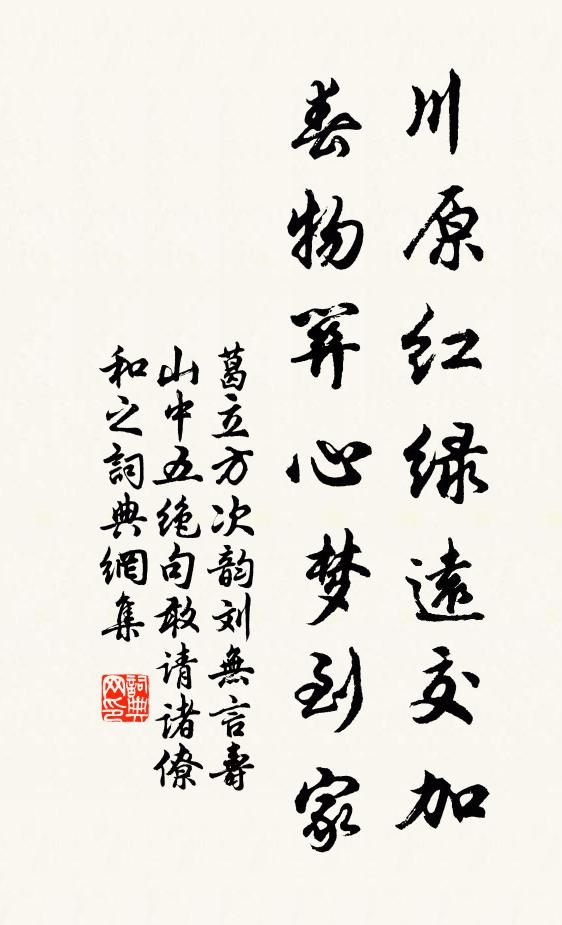 川原红绿遠交加
春物關心梦到家
葛立方次韵刘無言壽
山中五绝句敢请诸僚
和之詞典網集
詞典网印